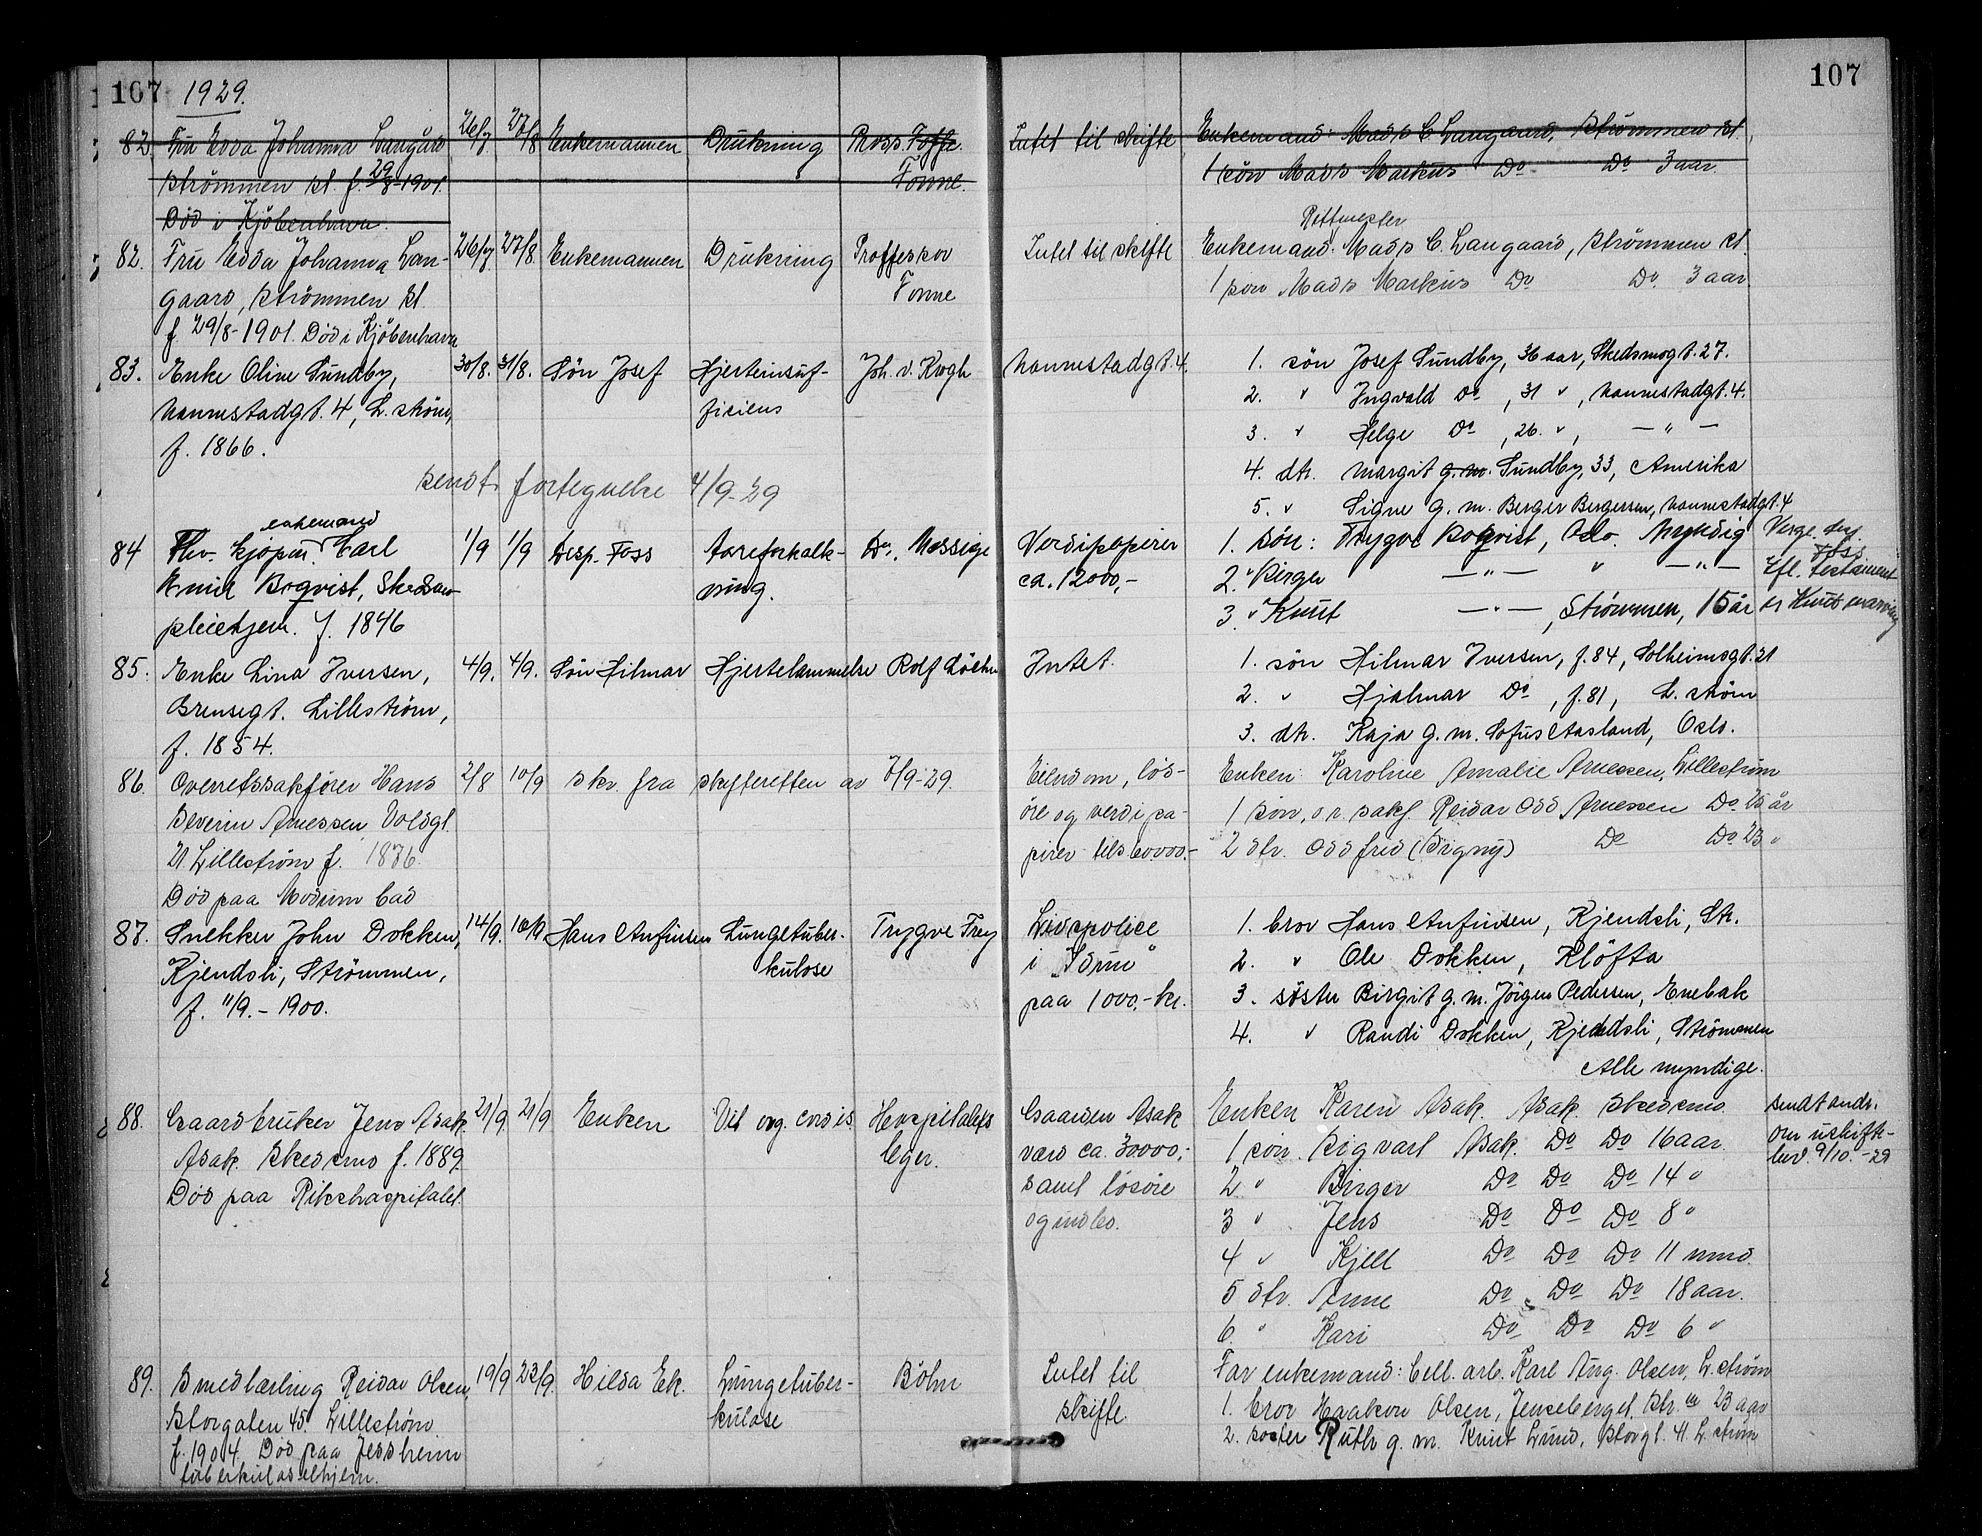 107 1929. 107
82. Fru Edda Johanna Langård 26/7 27/8 Enkemannen Drukning Intet til skifte Enkemand: Mads C. Langaard, Strømmen st.
Strømmen st f. 29/8-1901. Tonne. 1 søn Mads Markus Do Do 3 aar.
Død i Kjöbenhavn.
Rittmester
82. Fru Edda Johanna Lan- 26/7 27/8. Enkemannen Drukning Proffessor Intet til skifte Enkemand: Mads C. Langaard, Strømmen st
gaard, Strömmen st. Tonne 1 søn Mads Markus Do Do 3 aar
f 29/8-1901. Död i Kjöbenhavn
83. Enke Oline Sundby, 30/8. 31/8. Sön Josef Hjerteinsuf- Joh. v. Krogh Nannestadgt. 4. 1. sön Josef Sundby, 36 aar, Skedsmogt. 27.
Nannestadgt. 4, L.ström, fisiens 2. " Ingvald Do, 31 ", Nannestadgt. 4.
f. 1866. 3. " Helge Do, 26. ", — " —
4. dtr. Margit g. m. Sundby, 33, Amerika
sendt fortegnelse 4/9-29
5. " Signe g. m. Berger Bergersen, Nannestadgt. 4
enkemand
84 Fhv. kjöpm. Carl 1/9 1/9 Desp. Foss Aareforkalk- Dr. Messige Verdipapirer 1. Sön: Trygve Boqvist, Oslo. Myndig Verge desp. Foss
Emil Boqvist, Skedsmo ning. ca. 12000,- 2. " Birger — " — " — " — Efl. testament
pleiehjem. f. 1846 3. " Knut — " —, Strömmen, 15 år
85. Enke Lina Iversen, 4/9. 4/9. Sön Hilmar Hjertelammelse Intet. 1. sön Hilmar Iversen, f. 84, Solheimsgt. 21
Brensegt. Lilleström, 2. " Hjalmar Do, f. 81, L. ström
f. 1854. 3. dtr. Kaja g. m. Sofus Aasland, Oslo.
86. Overretssakförer Hans 2/8 10/9 skr. fra skifteretten av 7/9-29. Eiendom, lös- Enken Karoline Amalie Arnessen, Lilleström
Severin Arnessen Voldgt. öre og verdipa- 1 sön, o.r. sakf. Reidar Odd Arnessen Do år
21 Lilleström f. 1876. pirer 2 dtr. Oddfrid (Signy) Do Do 23 "
Död paa Modum bad
87. Snekker John Dokken, 14/9. 16/9 Hans Anfinsen Lungetuber- Trygve Frey Livspolice 1. bror Hans Anfinsen, Kjendsli, Str.
Kjendsli, Strömmen, kulose i "Idun" 2. " Ole Dokken, Klöfta
f. 11/9. - 1900. paa 1000,- kr. 3. söster Birgit g. m. Jörgen Pedersen, Enebak
4. " Randi Dokken, Kjendsli, Strömmen
Alle myndige.
88. Gaardbruker Jens Asak 21/9 21/9 Enken Vit. org. cordis. Hospitalets Gaarden Asak Enken Karen Asak. Asak Skedsmo sendt andr.
Asak Skedsmo f. 1889 læge. værd ca. 30000,- 1 sön Sigvart Asak. Do Do 16 aar. om uskifte-
Död paa Rikshospitalet samt lösöre 2 " Birger Do Do Do 14 " bev. 9/10. - 29
og indbo. 3 " Jens Do Do Do 8 "
4 " Kjell Do Do Do 11 mnd.
5 dtr. Anne Do Do Do 18 aar.
6. " Kari Do Do Do 6 "
89. Smedlærling Reidar Olsen, 19/9 23/9. Hilda Ek. Lungetuber- Böhn Intet til Far enkemand: cell. arb. Karl Aug. Olsen, L.ström
Storgaten 45. Lilleström kulose skifte. 1. bror Haakon Olsen, 23 aar
f. 1904. Död paa Jessheim 2. söster Ruth g. m. Knut Lund, Storgt. 41. L. ström
tuberkulosehjem.